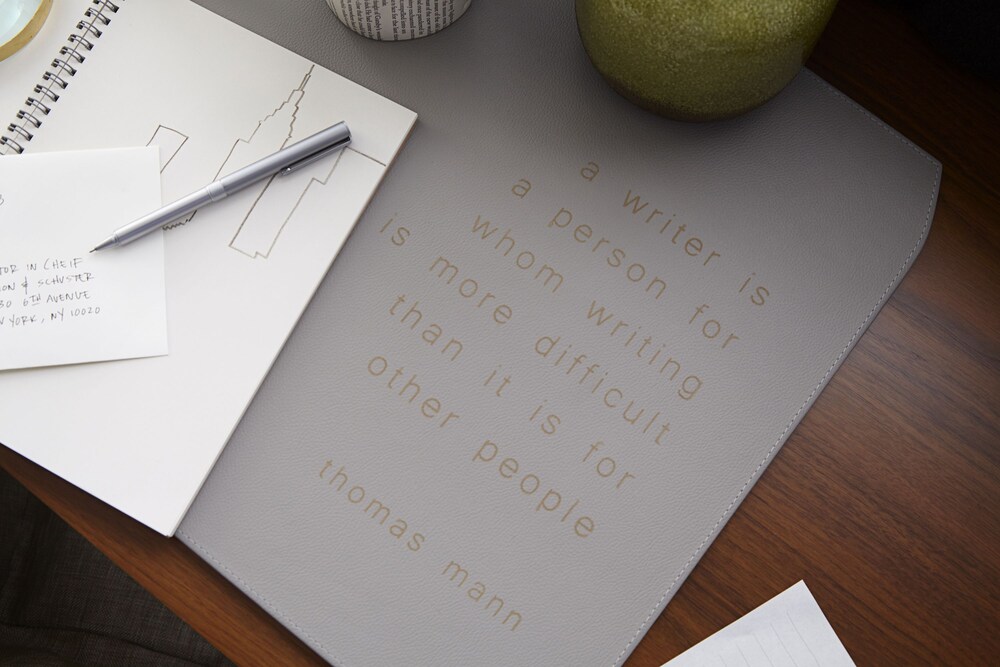 a writer is
a person for
whom writing
is more difficult
than it is for
other people
thomas mann
TOR IN CHEIF
ON & SCHUSTER
30 6TH AVENUE
YORK, NY 10020